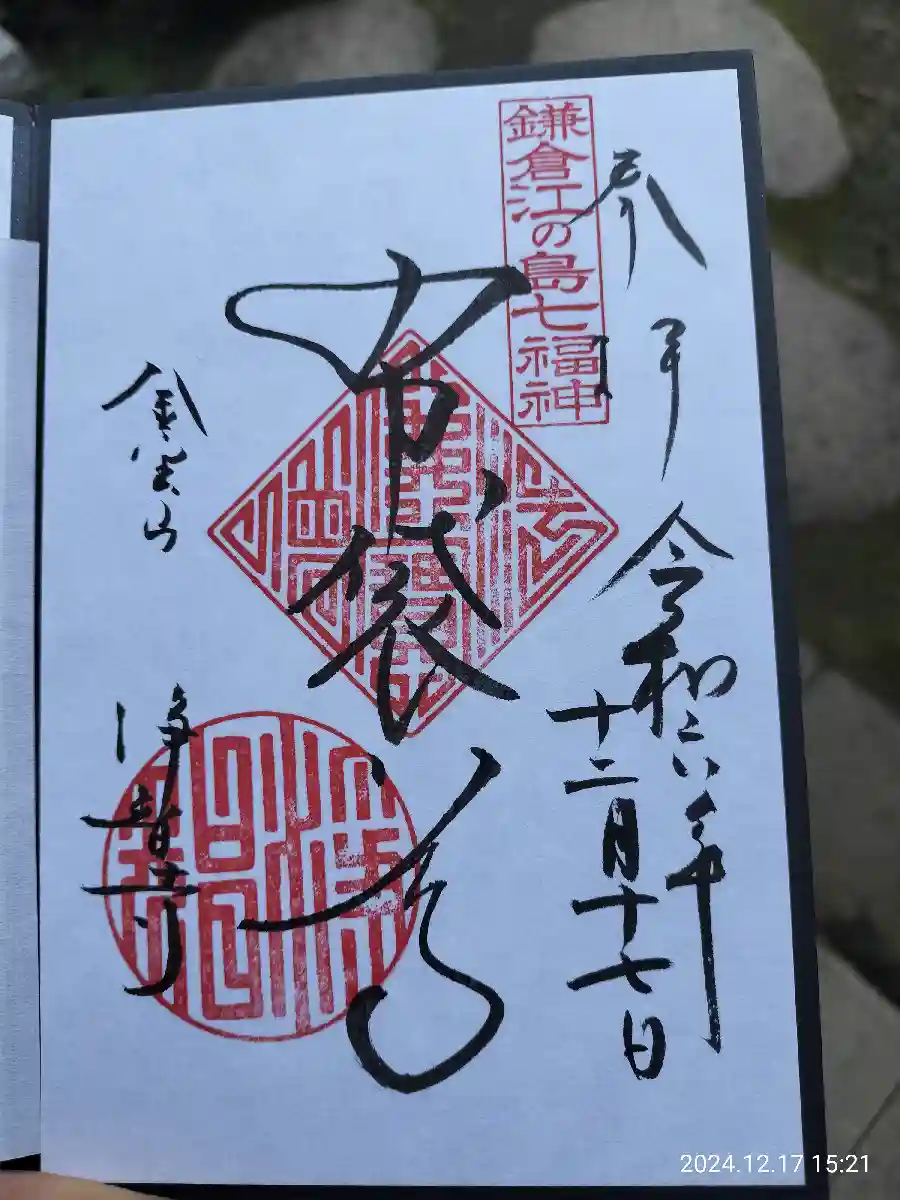 鎌倉江の島七福神
奉拝
令和六年
十二月十七日
布袋尊
金宝山
浄智寺
2024.12.17 15:21